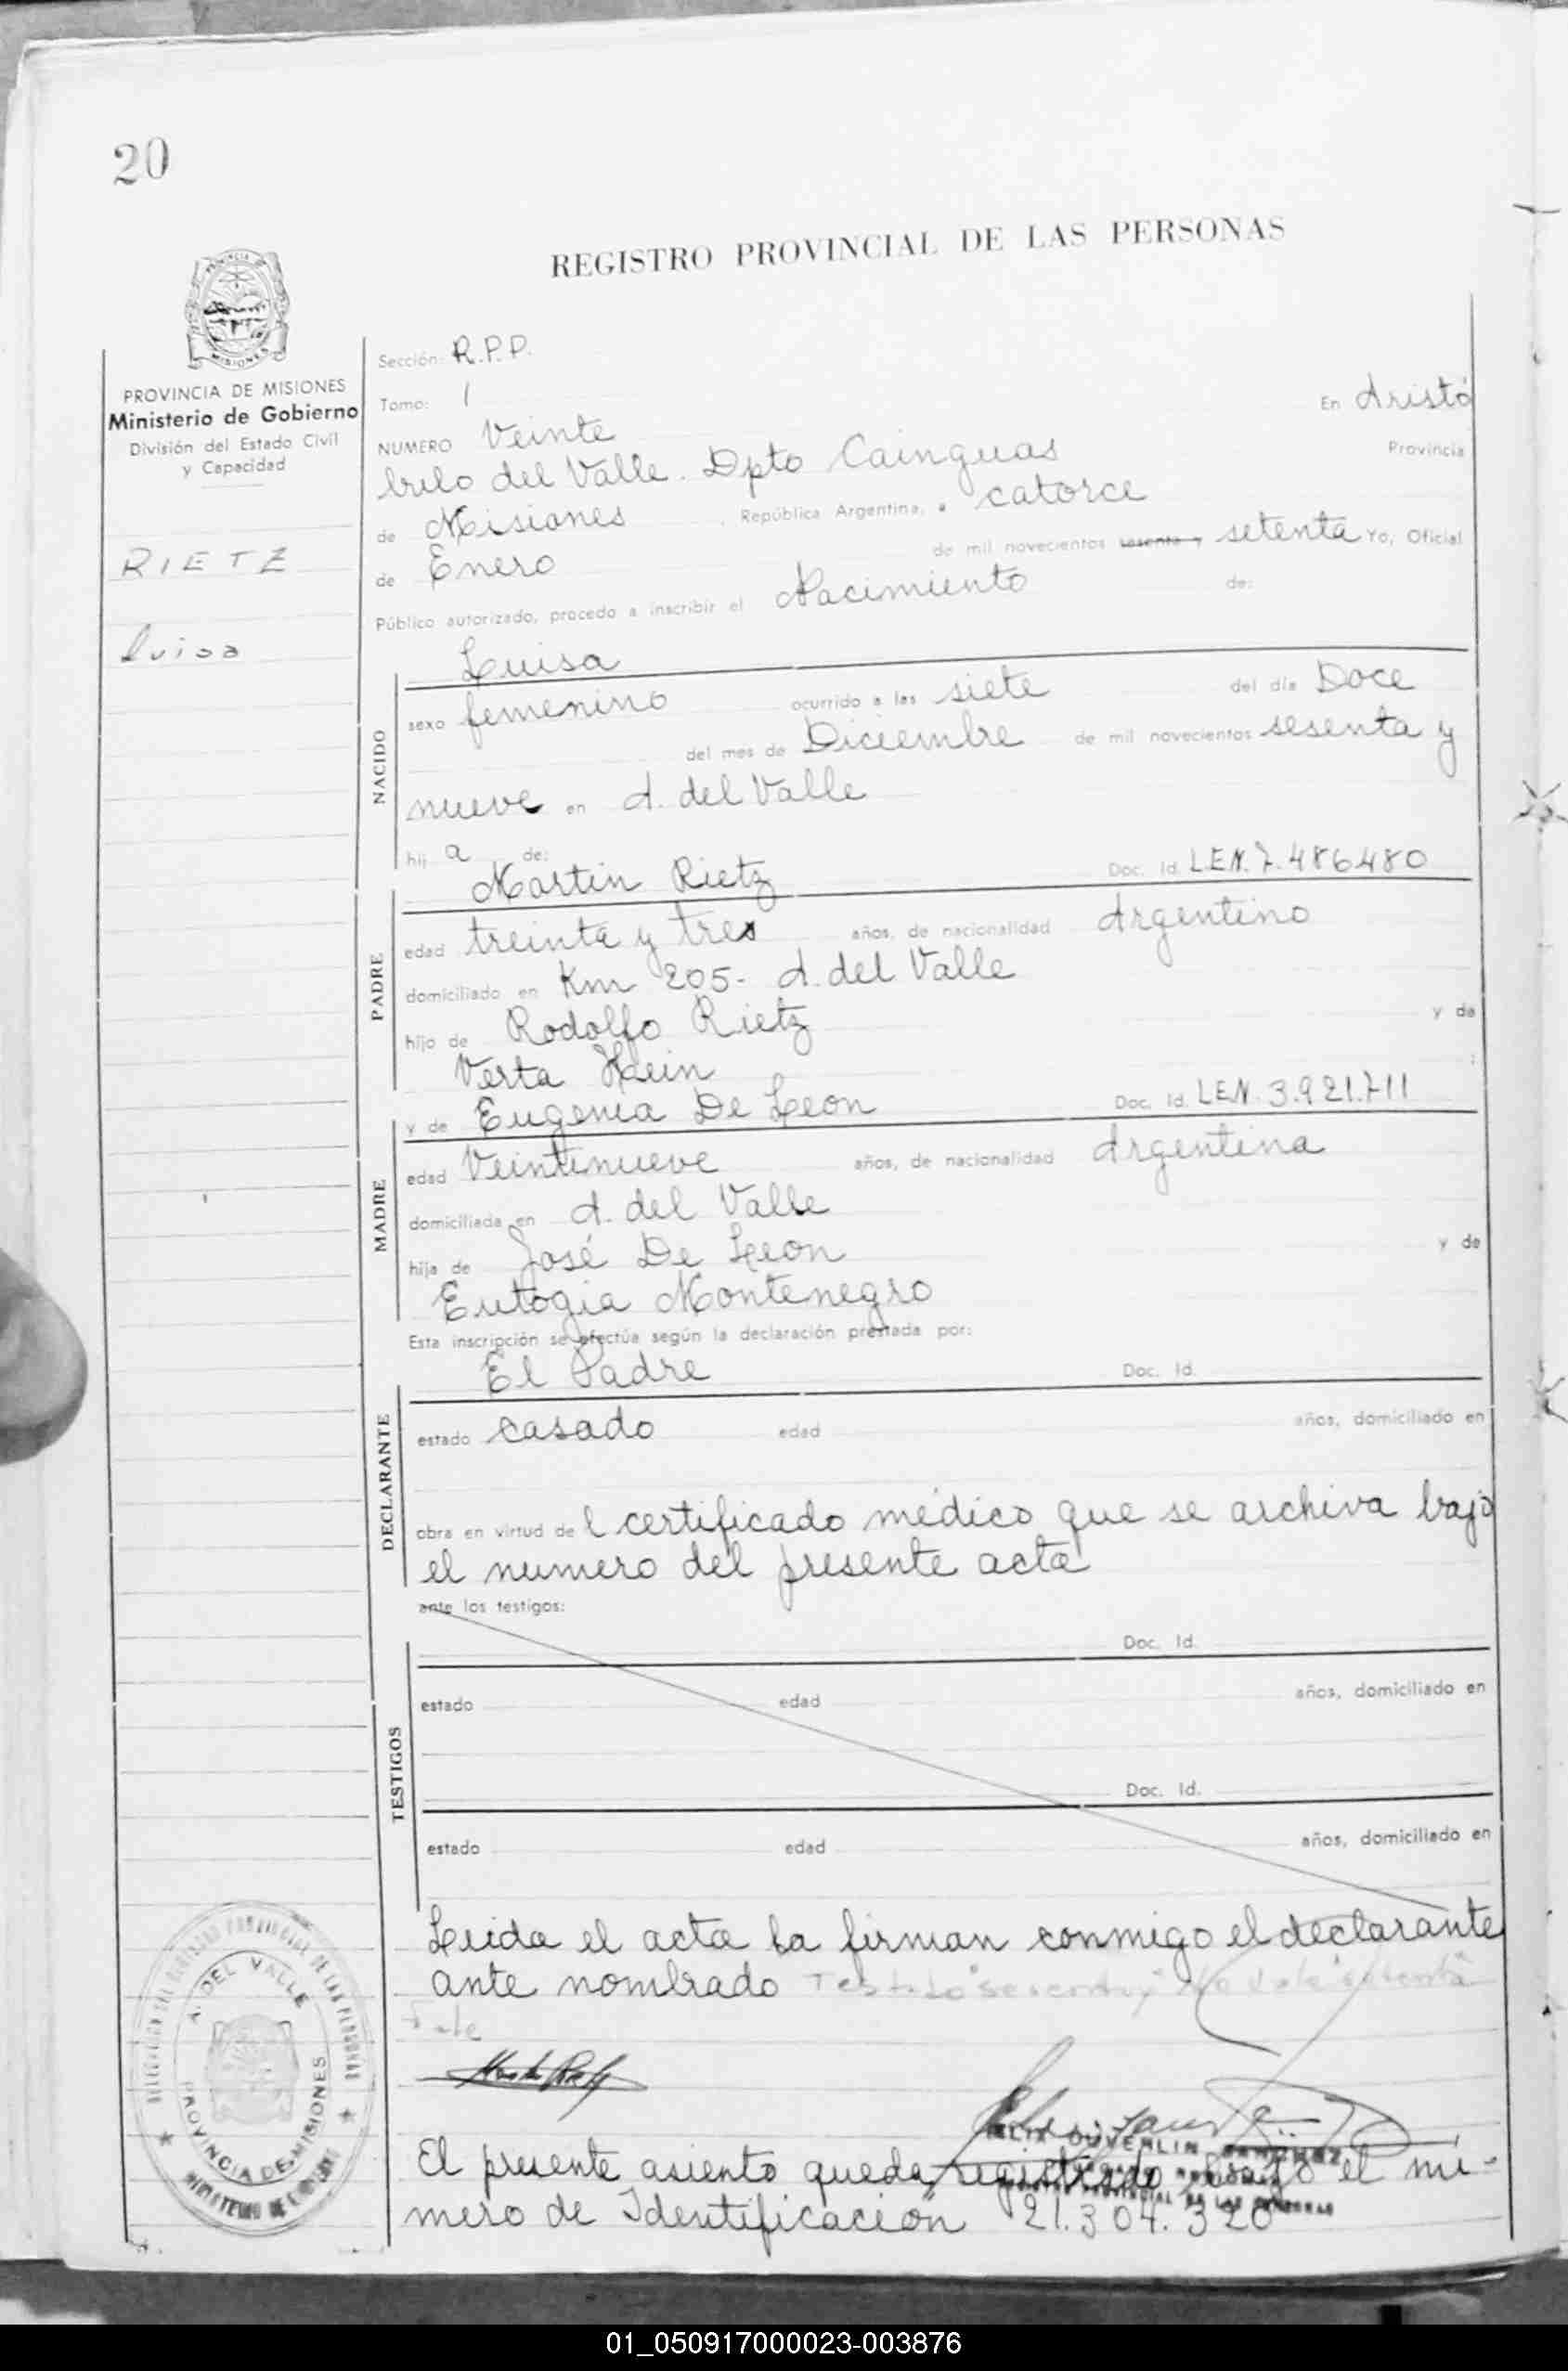 20
REGISTRO PROVINCIAL DE LAS PERSONAS
PROVINCIA DE MISIONES
Ministerio de Gobierno
División del Estado Civil
y Capacidad
RIETZ
Luisa
Sección: R.P.P.
Tomo: 1 En Aristó
NUMERO Veinte
bulo del Valle. Dpto Cainguas Provincia
de Misiones, República Argentina, a catorce
de Enero de mil novecientos sesenta y setenta Yo, Oficial
Público autorizado, procedo a inscribir el Nacimiento de:
Luisa
NACIDO
sexo femenino ocurrido a las siete del día Doce
del mes de Diciembre de mil novecientos sesenta y
nueve en A. del Valle
hij a de:
Martin Rietz Doc. Id. LEN. 7.486480
PADRE
edad treinta y tres años, de nacionalidad Argentino
domiciliado en Km 205- A. del Valle
hijo de Rodolfo Rietz y de
Verta Hein ;
y de Eugenia De Leon Doc. Id. LEN. 3.921.711
MADRE
edad Veintinueve años, de nacionalidad Argentina
domiciliada en A. del Valle
hija de José De Leon y de
Eutogia Montenegro
Esta inscripción se efectúa según la declaración prestada por:
El Padre Doc. Id.
DECLARANTE
estado casado edad años, domiciliado en
obra en virtud de l certificado médico que se archiva bajo
el numero del presente acta
ante los testigos:
TESTIGOS
Doc. Id.
estado edad años, domiciliado en
Doc. Id.
estado edad años, domiciliado en
Leida el acta la firman conmigo el declarante
ante nombrado Testado "sesenta y" No vale "setenta"
Vale
A. DEL VALLE
PROVINCIA DE MISIONES
El presente asiento queda registrado bajo el nú-
mero de Identificación 21.304.320
01_050917000023-003876